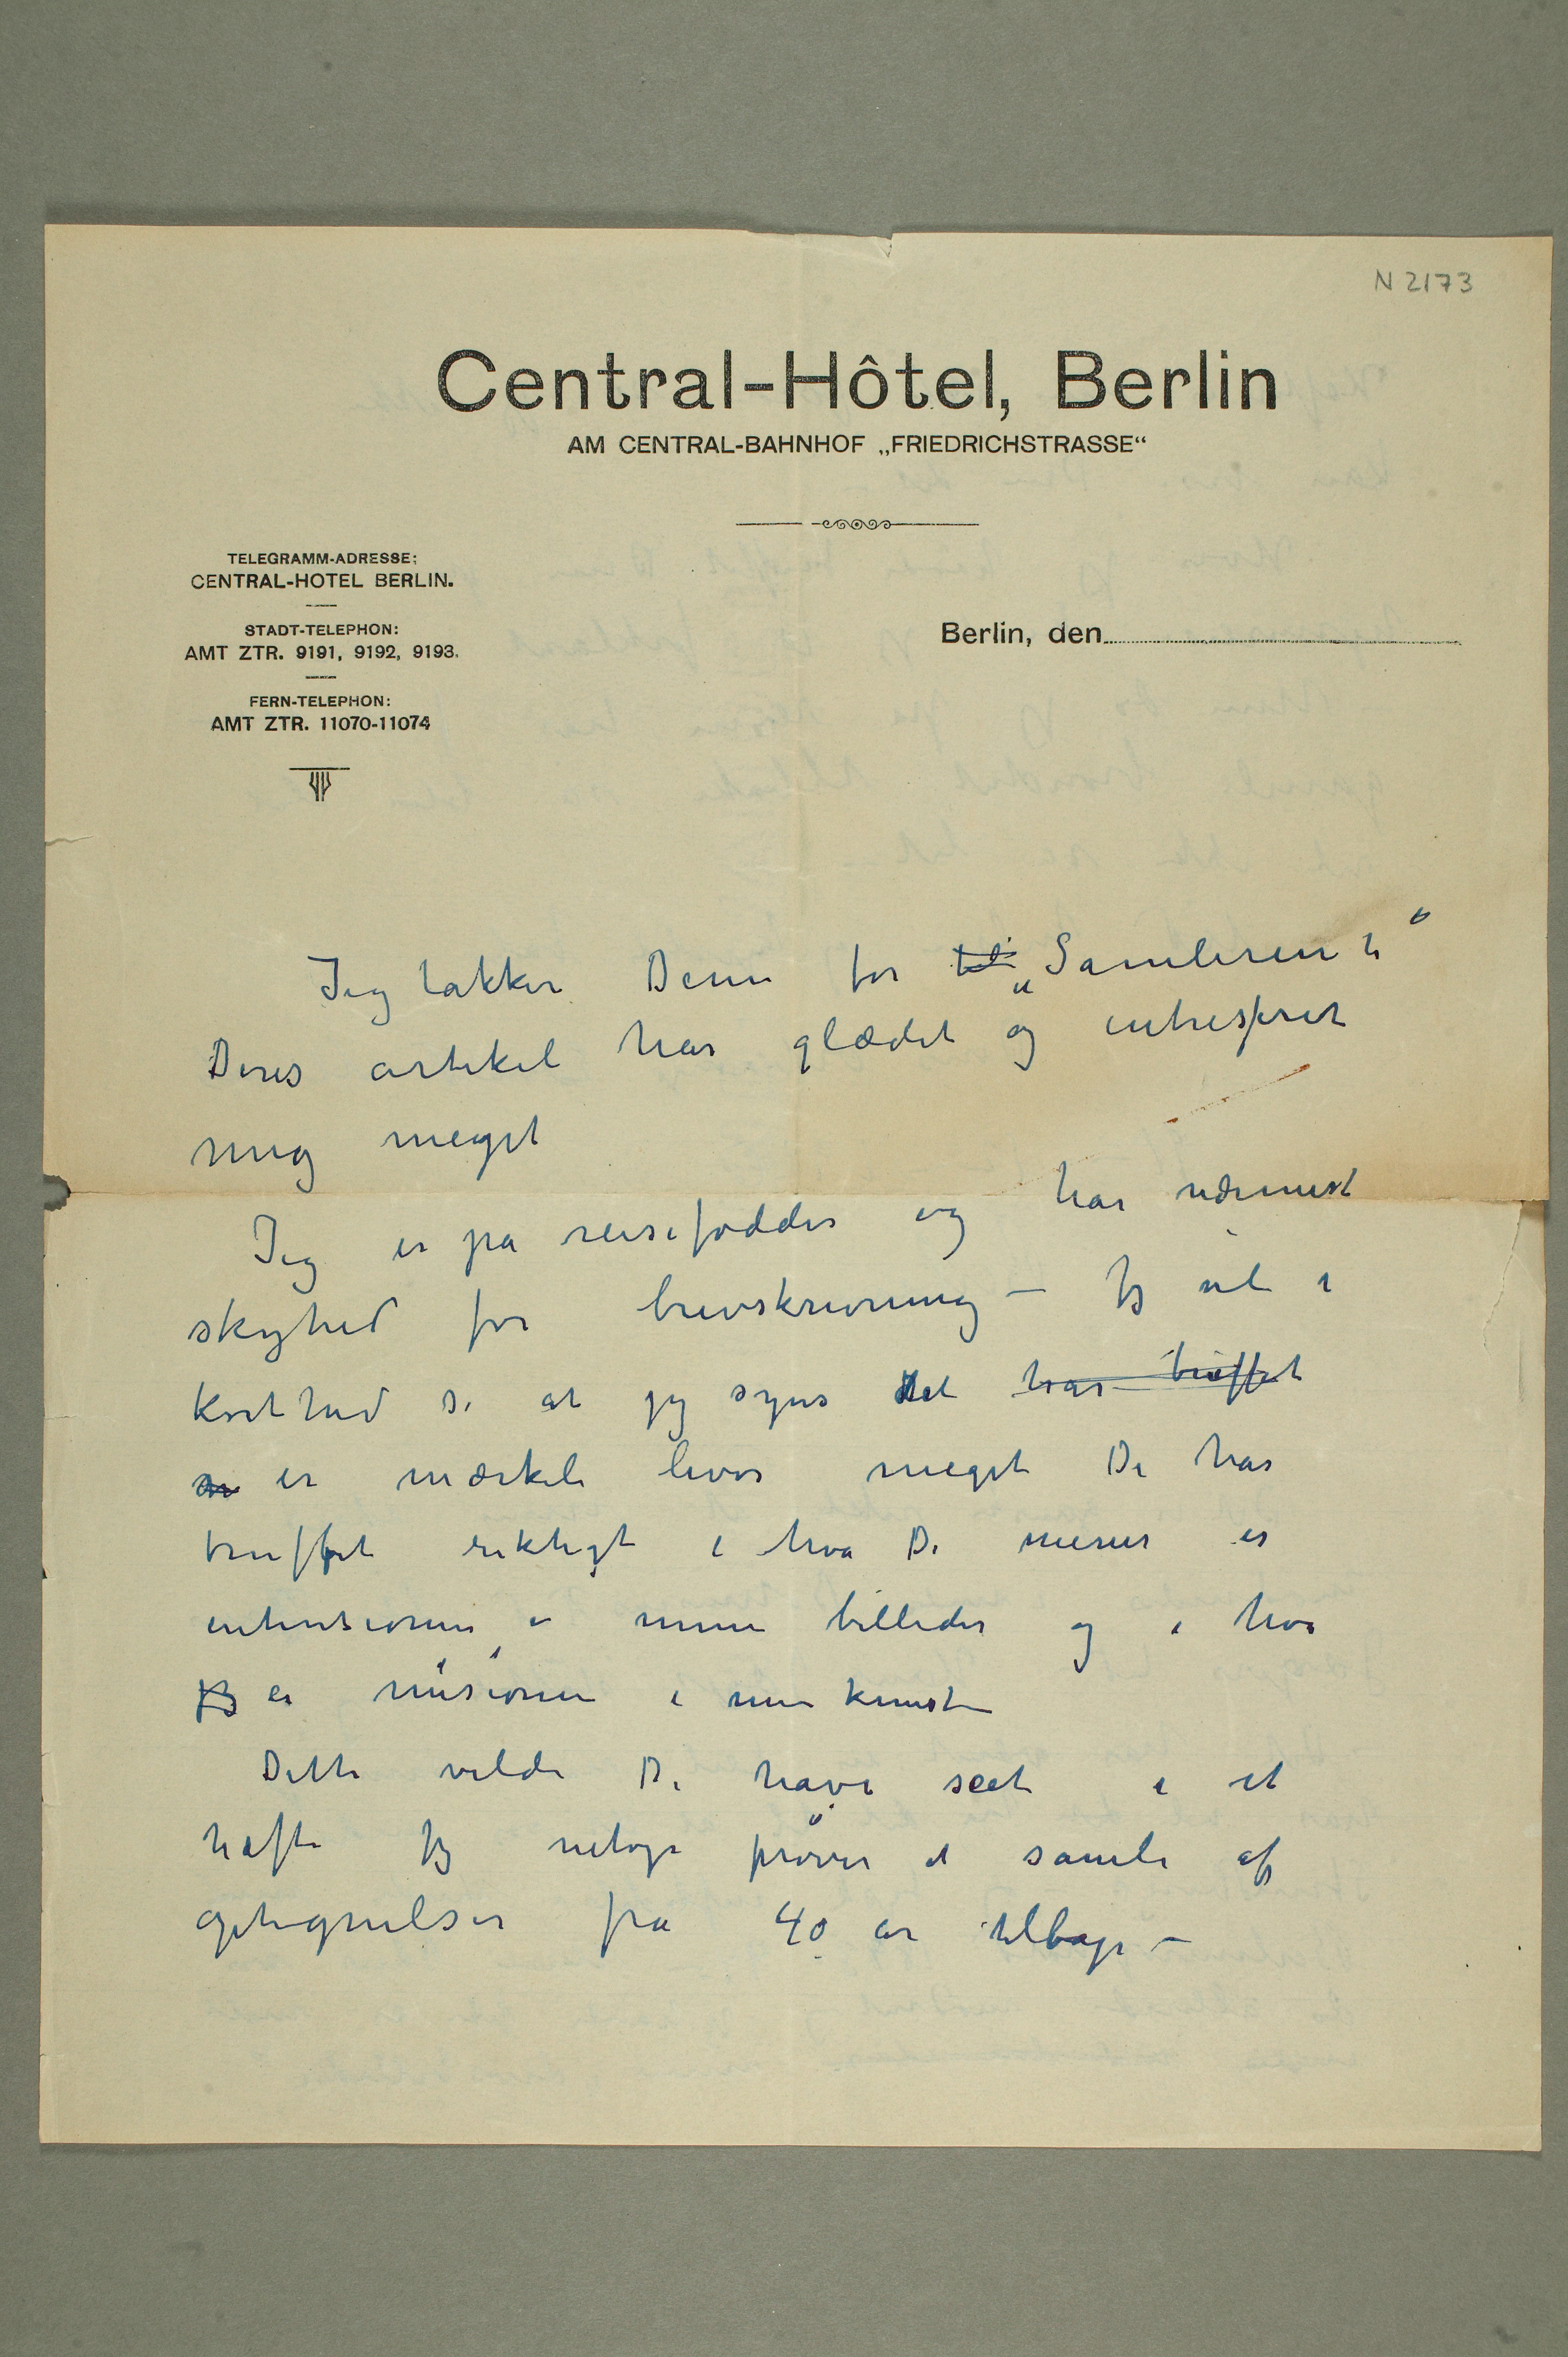 N 2173
Central-Hôtel, Berlin
AM CENTRAL-BAHNHOF „FRIEDRICHSTRASSE“
TELEGRAMM-ADRESSE:
CENTRAL-HOTEL BERLIN.
STADT-TELEPHON:
AMT ZTR. 9191, 9192, 9193.
FERN-TELEPHON:
AMT ZTR. 11070-11074
Berlin, den
Jeg takker Dem for til „Samleren“
Deres artikel har glædet og
mig meget
Jeg er på reisefødder og har nærmest
skyhed for brevskrivning – Jeg vil i
korthed si at jeg synes det har truffet
er mærkeli hvor meget De har
truffet riktigt i hva De mener er
i mine billeder og i hva
jeg er i min kunst
Dette vilde De have seet i et
hæfte jeg netop prøver at samle af
optegnelser fra 40 år tilbage –